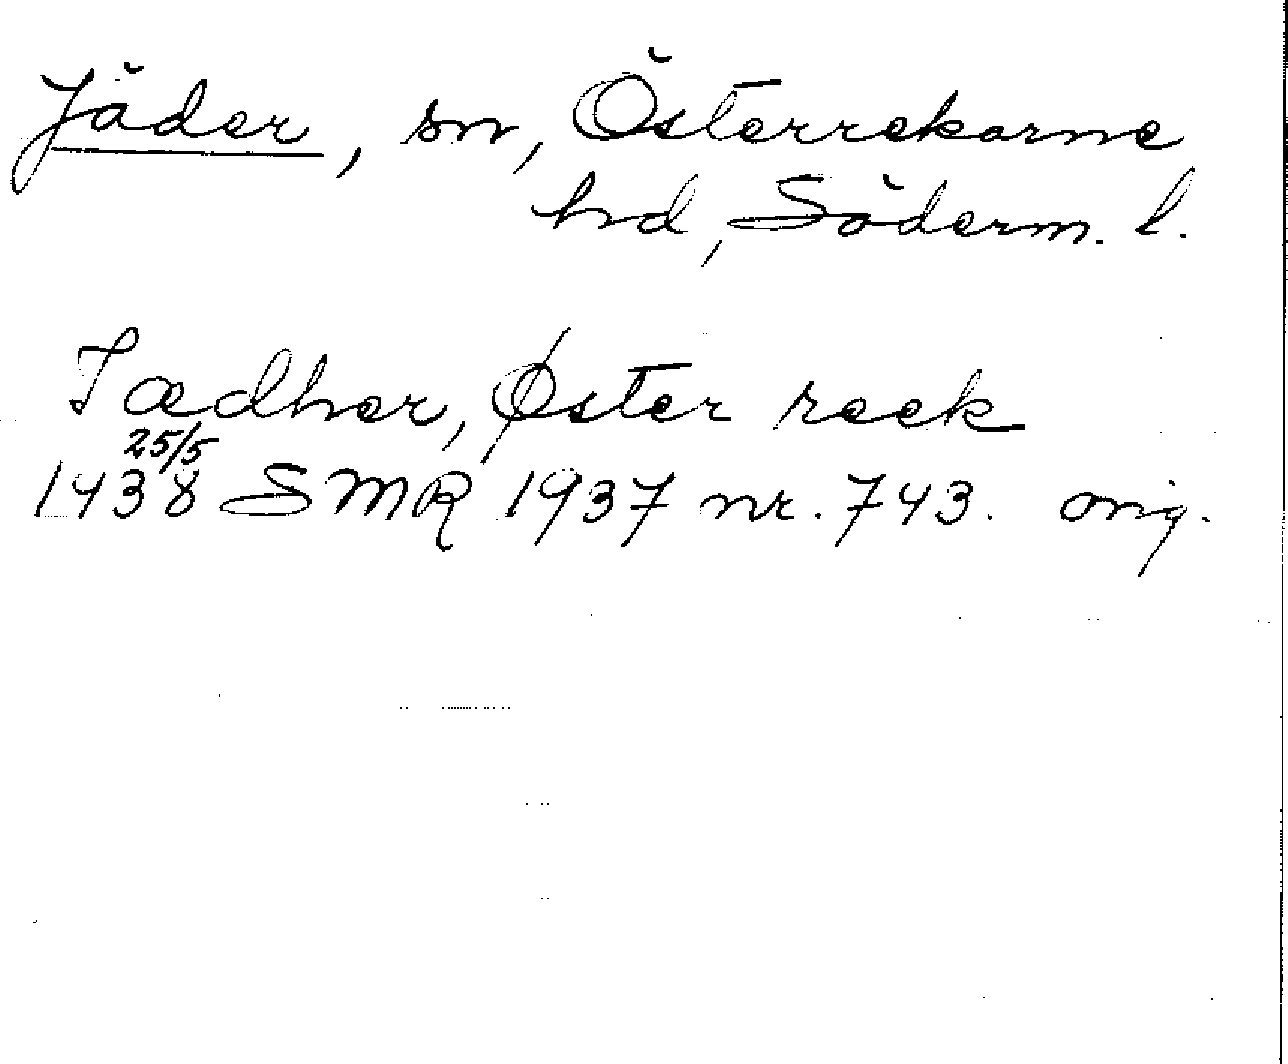 Jäder, sn, Österrekarne
hd, Söderm. l.
Iædher, Øster reek
25/5
1438 SMR 1937 nr. 743. orig.